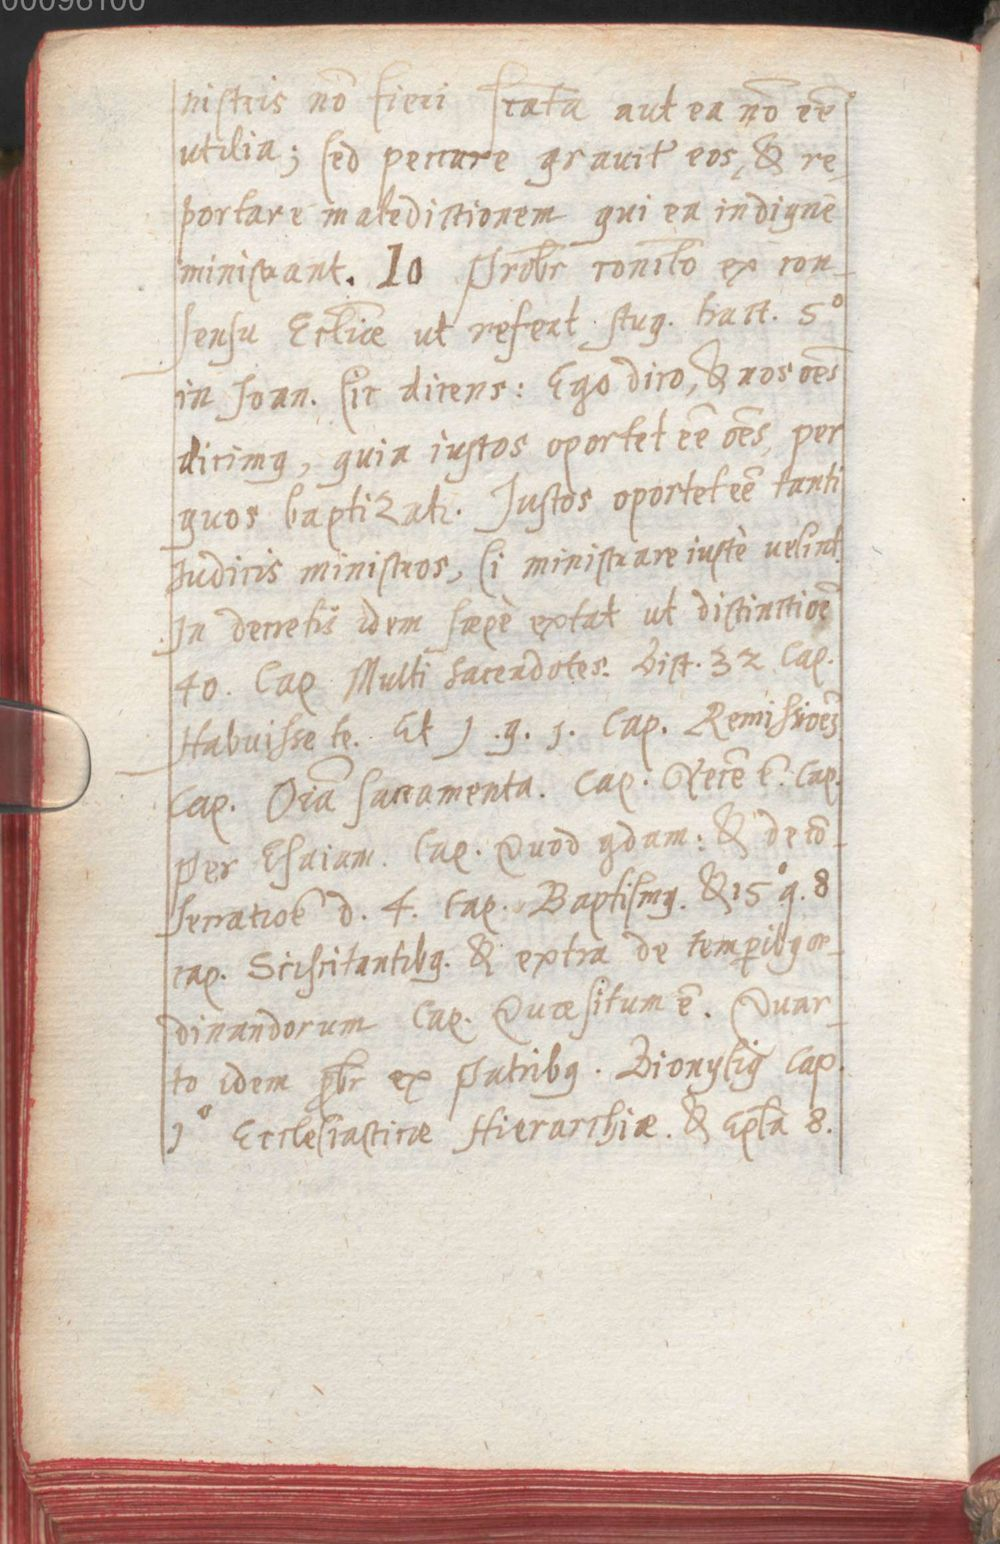 00098100
nistris nō fieri scata aut ea nō eē
utilia; sed peccare grauit̃ eos, & re-
portare maledictionem qui ea indignè
ministrant. 10 Prōbr concl̃o ex con-
sensu Eccl̃iæ ut refert Aug. tract. 5º
in Joan. sic dicens: Ego dico, & nos oēs
dicimq, quia iustos oportet eē oēs, per
quos baptizati. Justos oportet eē tanti
Judicis ministros, si ministrare iustè uelint.
In decretis idem sæpè extat ut distinctioē
40. Cap Multi sacerdotes. Dist. 32 Cap.
Habuisse te. Et 1 .q. 1. Cap. Remissioēs
Cap. Oīa sacramenta. Cap. Recē ē. Cap.
Per Esaiam. Cap. Quod qdam: & de cō-
secratioē d. 4. Cap. Baptismq. & 15º q. 8
cap. Sciscitantibq. & extra de temporibq or-
dinandorum Cap. Quæsitum ē. Quar-
to idem p̄br ex Patribq. Dionysiq Cap.
1º Ecclesiasticæ Hierarchiæ. & Ep̄la 8.